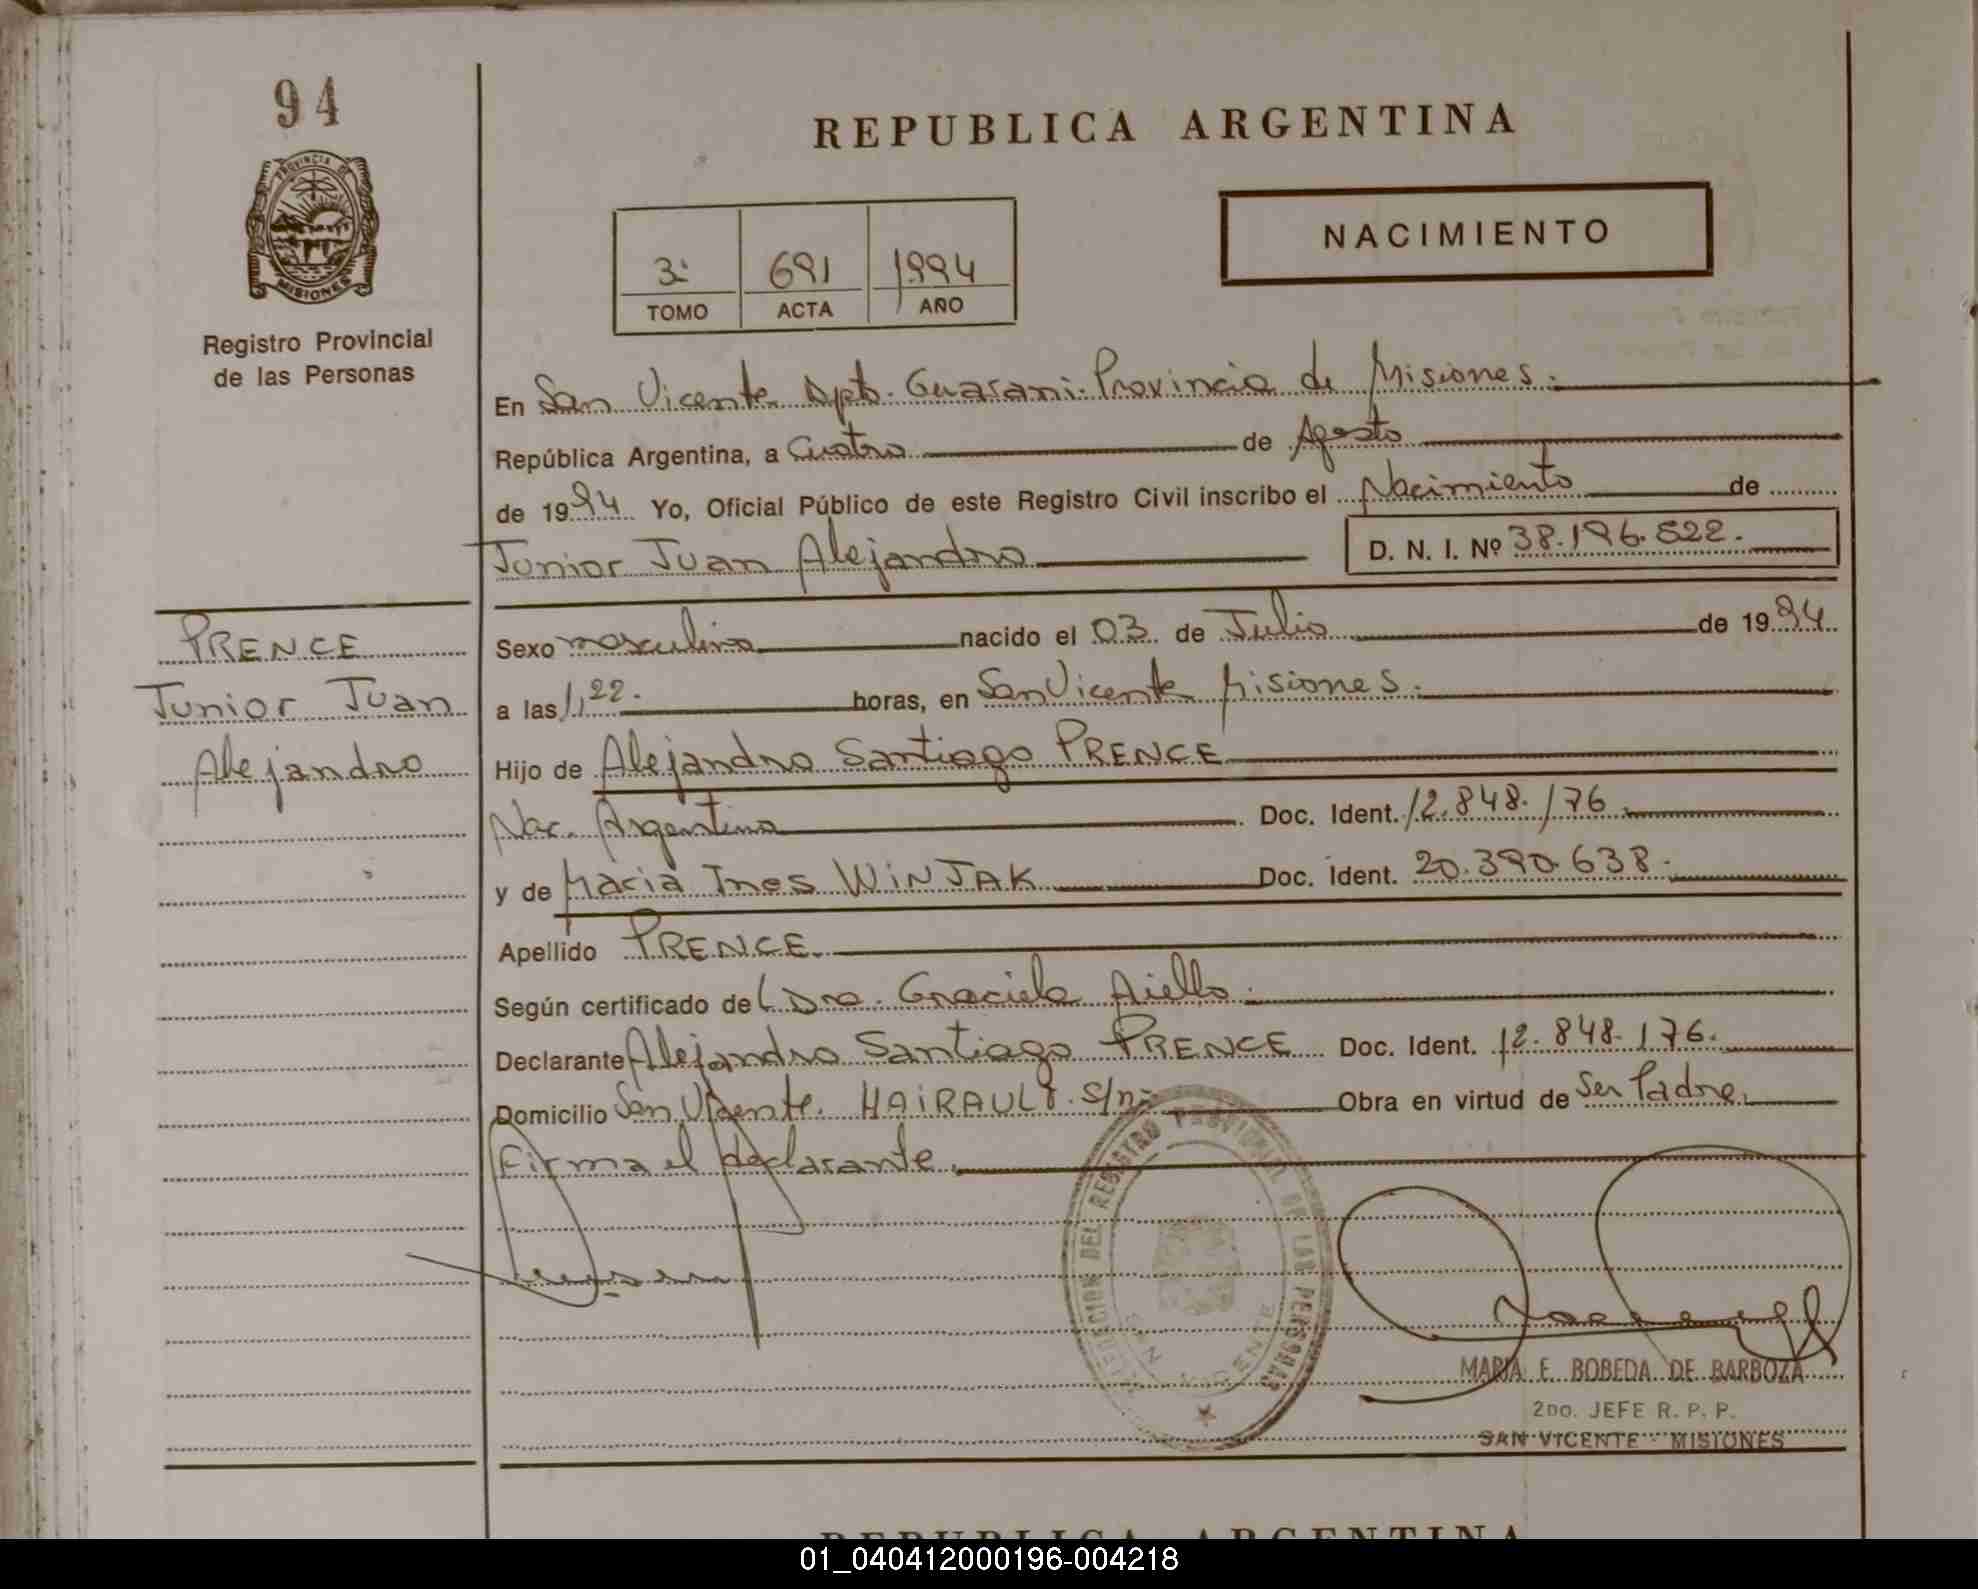 94
PROVINCIA DE
MISIONES
Registro Provincial
de las Personas
REPUBLICA ARGENTINA
NACIMIENTO
3: 691 1994
TOMO ACTA AÑO
En San Vicente Dpto. Guarani. Provincia de Misiones.
República Argentina, a Cuatro de Agosto
de 1994 Yo, Oficial Público de este Registro Civil inscribo el Nacimiento de
Junior Juan Alejandro D. N. I. Nº 38.196.522.
PRENCE
Junior Juan
Alejandro
Sexo masculino nacido el 03 de Julio de 1994
a las 1,22. horas, en San Vicente Misiones.
Hijo de Alejandro Santiago PRENCE
Nac. Argentina Doc. Ident. 12.848.176
y de Maria Ines WINJAK Doc. Ident. 20.390.638.
Apellido PRENCE.
Según certificado de Dra. Graciela Aiello.
Declarante Alejandro Santiago PRENCE Doc. Ident. 12.848.176.
Domicilio San Vicente. HAIRAULT. S/n: Obra en virtud de Ser Padre.
Firma el declarante.
DEL REGISTRO PROVINCIAL DE LAS PERSONAS
SAN VICENTE
MARIA E. BOBEDA DE BARBOZA
2DO. JEFE R. P. P.
SAN VICENTE - MISIONES
REPUBLICA ARGENTINA
01_040412000196-004218